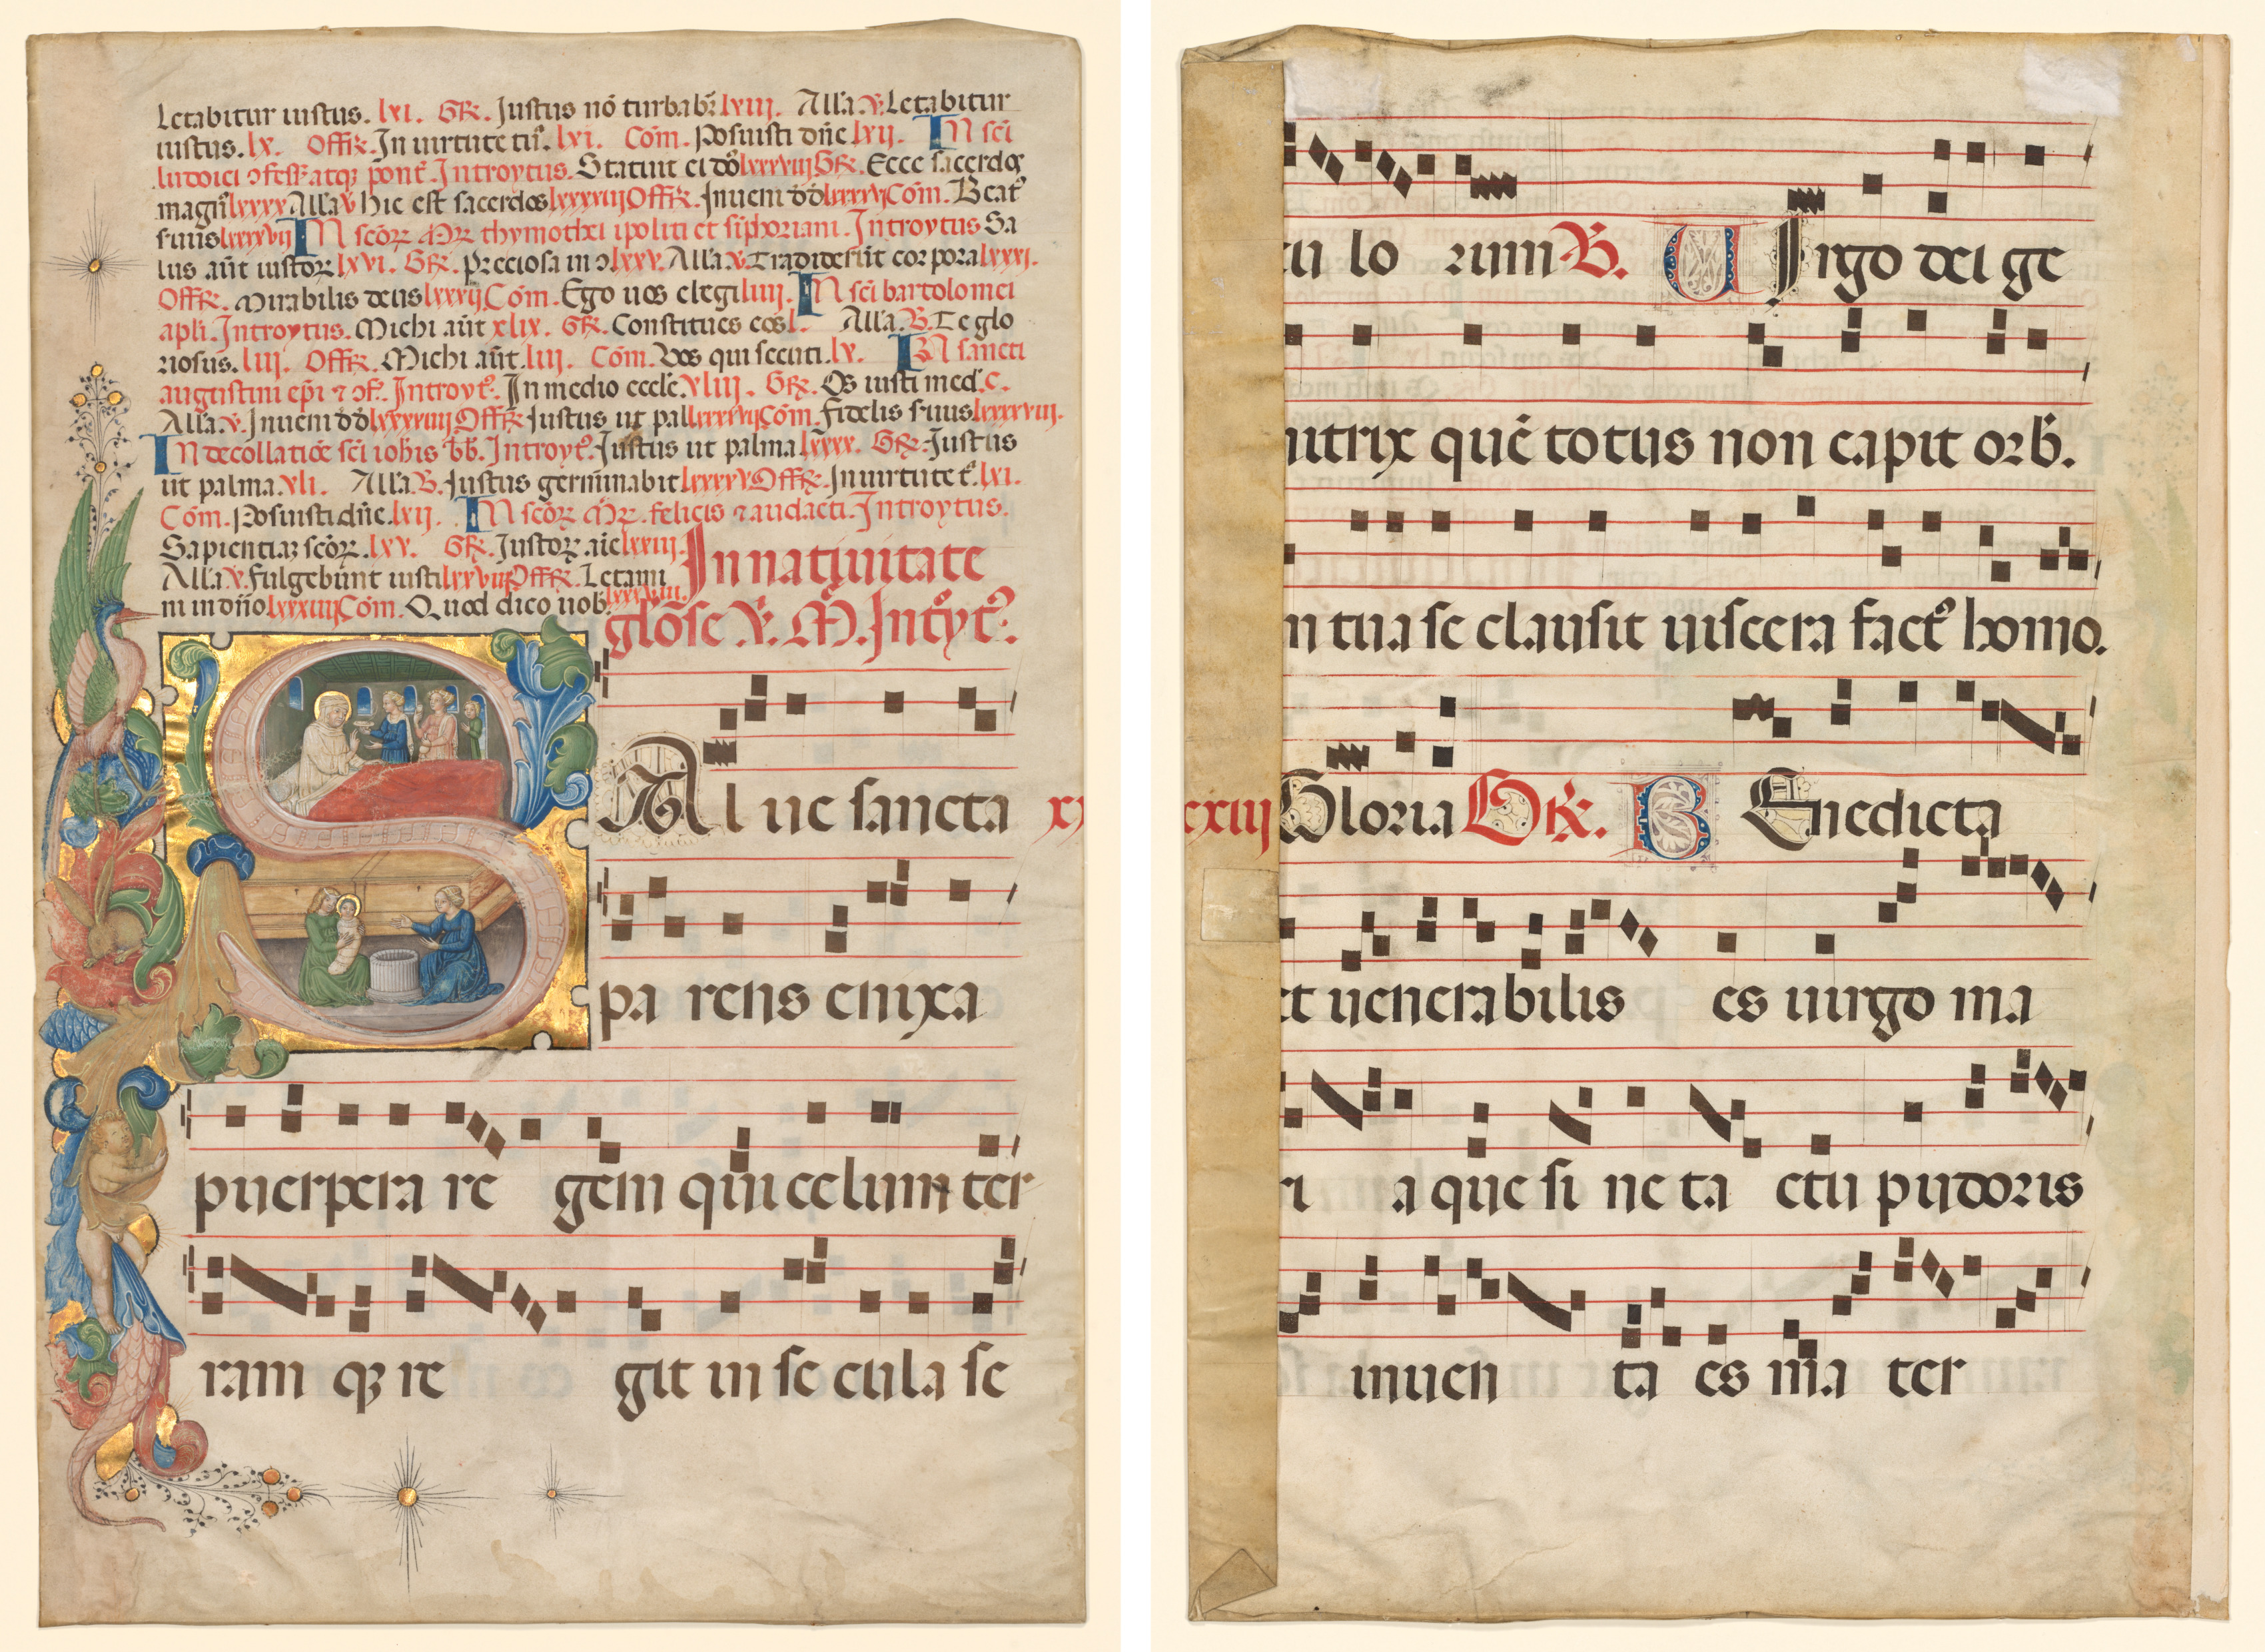 Letabitur iustus. lxi. GR. Justus nō turbab̄. lviii. Alla. v̄. Letabitur
iustus. lx. Offr̄. In uirtute tu᷒. lxi. Com̄. Posuisti dn̄e lxii. IN sc̄i
ludoici ↄfess̄ atq̨ pont̄. Introytus. Statuit ei dō lxxxviii GR. Ecce sacerdos
magn̄ lxxxx Alla v̄ hic est sacerdos lxxxxiii Offr̄. Inueni dd̄ lxxxxv Com̄. Beat᷒
suus lxxxxvii IN scōꝝ Mꝝ thymothei ipoliti et siphoriani. Introytus Sa
lus aūt iustoꝝ lxvi. GR. Preciosa in ↄ lxxv. Alla v̄. Tradiderūt corpora lxxxi.
Offr̄. Mirabilis deus lxxxii Com̄. Ego uos elegi liiii. IN sc̄i bartolomei
apl̄i. Introytus. Michi aūt xlix. GR. Constitues eos l. Alla. v̄. Te glo
riosus. lii. Offr̄. Michi aūt. liii. Com̄. Vos qui secuti. lv. IN sancti
augustini ep̄i ⁊ ↄf᷒. Introyt᷒. In medio eccl̄e. xliii. GR. Os iusti med̄. c.
Alla. v̄. Inueni dd̄ lxxxxiiii Offr̄. Justus ut pal lxxxxvii Com̄. Fidelis s̄uus lxxxxviii.
IN decollatiōe sc̄i ioh̄is bb̄. Introyt᷒. Justus ut palma lxxxx. GR. Justus
ut palma. xli. Alla. v̄. Justus germinabit lxxxxv Offr̄. In uirtute t᷒. lxi.
Com̄. Posuisti dn̄e. lxii. IN scōꝝ Mꝝ. felicis ⁊ audacti. Introytus.
Sapientiaꝫ scōꝝ. lxv. GR. Justoꝝ aīe lxxiii.
Alla. v̄. Fulgebunt iusti lxxviii Offr̄. Letami
ni in dn̄o lxxxiiii Com̄. Quod dico uob̄ lxxxviii.
In natiuitate
glōse V̄. M̄. Intᷓyt᷒.
SAlue sancta xx
parens enixa
puerpera regem qui celum ter
ram qꝫ regit in secula se
cu lo rum V̄. VIrgo dei ge
nitrix quē totus non capit orb̄.
in tua se clausit uiscera fact᷒ homo.
cxiii Gloria GR̄. BEnedicta
et uenerabilis es uirgo ma
ri a que si ne ta ctu pudoris
inuen ta es ma ter